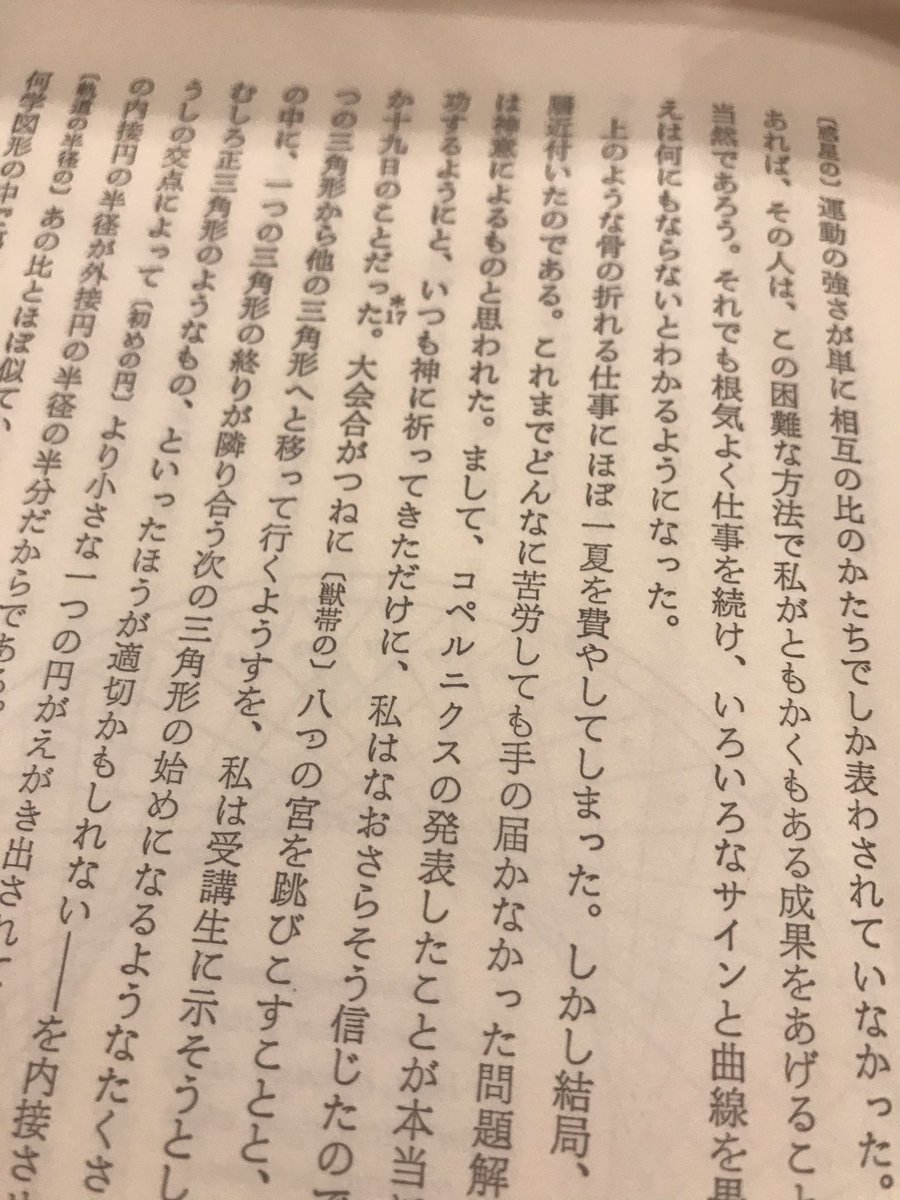 〔惑星の〕運動の強さが単に相互の比のかたちでしか表わされていなかった。
あれば、その人は、この困難な方法で私がともかくもある成果をあげること
当然であろう。それでも根気よく仕事を続け、いろいろなサインと曲線を思
えは何にもならないとわかるようになった。
上のような骨の折れる仕事にほぼ一夏を費やしてしまった。しかし結局、
近付いたのである。これまでどんなに苦労しても手の届かなかった問題解
は神意によるものと思われた。まして、コペルニクスの発表したことが本当に
功するようにと、いつも神に祈ってきただけに、私はなおさらそう信じたので
か十九日のことだった。*17大会合がつねに〔獣帯の〕八つの宮を跳びこすことと、
つの三角形から他の三角形へと移って行くようすを、私は受講生に示そうとし
の中に、一つの三角形の終りが隣り合う次の三角形の始めになるようなたくさ
むしろ正三角形のようなもの、といったほうが適切かもしれない――を内接さ
うしの交点によって〔初めの円〕より小さな一つの円がえがき出され
の内接円の半径が外接円の半径の半分だからである。
〔軌道の半径の〕あの比とほぼ似て
何学図形の中で